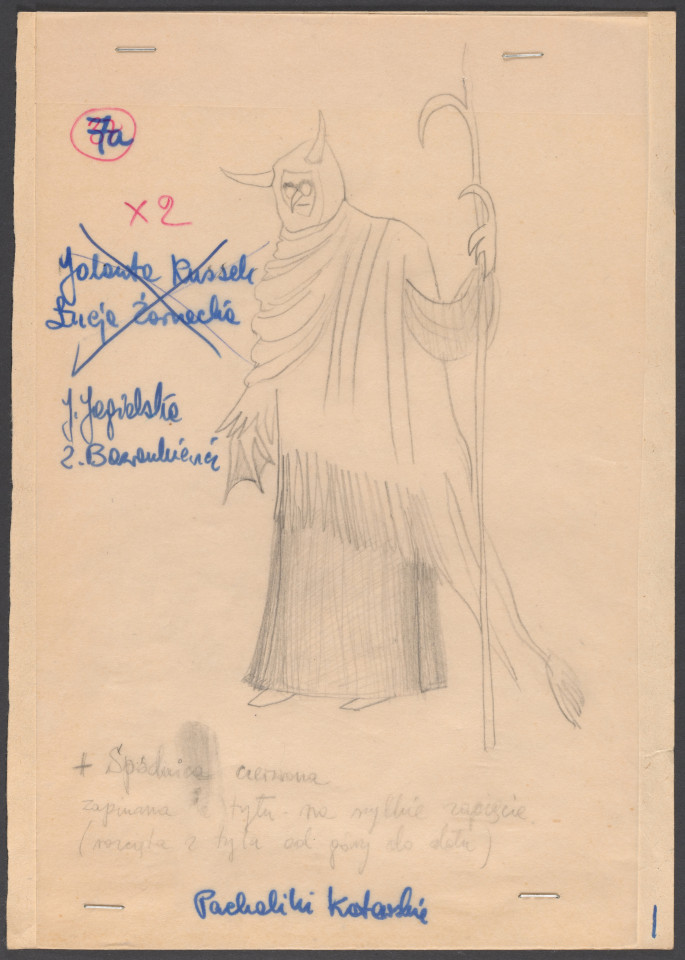 7a
x 2
Jolanta Russek
Łucja Żarnecka
J. Jagielska
Z.
+ Spódnica czerwona
zapinana z tyłu na szybkie zapięcie
(rozcięta z tyłu od góry do dołu)
Pachaliki Katowskie
1